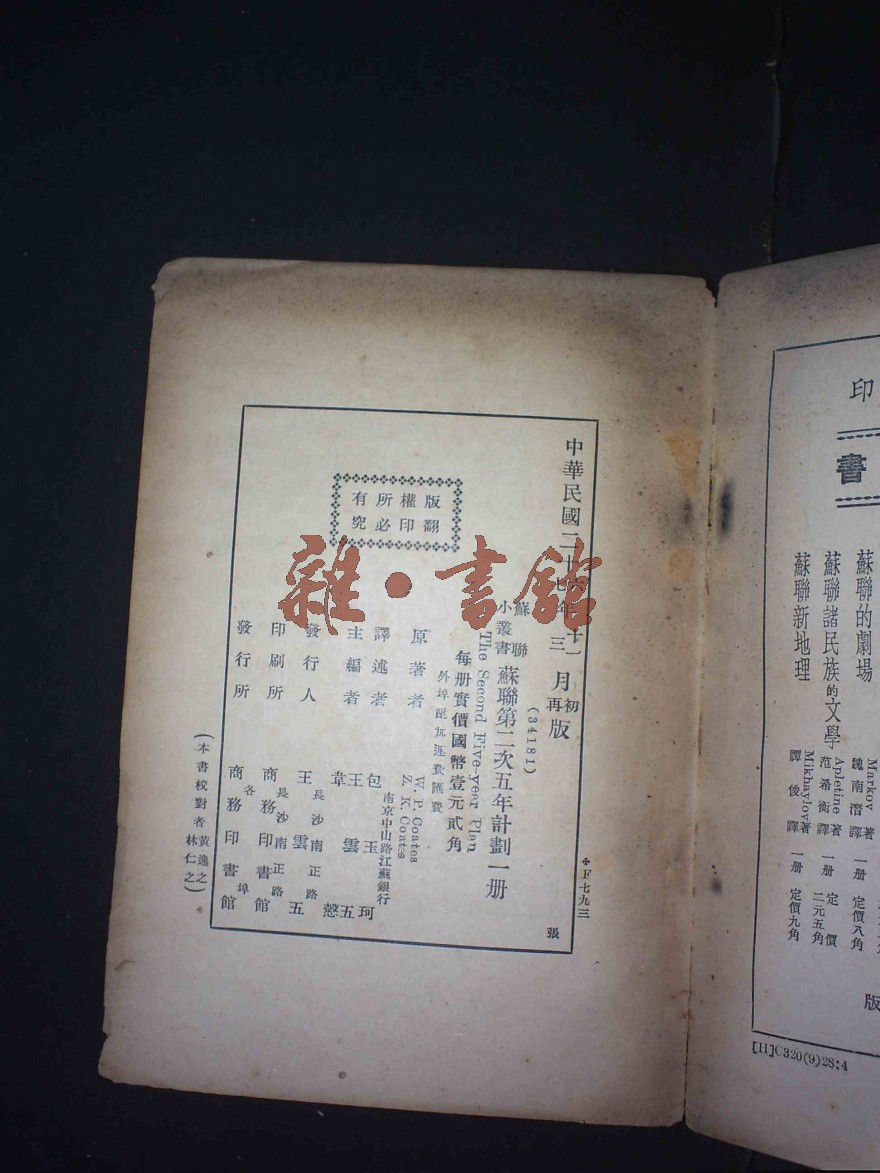 印
書
蘇聯的劇場
Markov著
魏南潛譯
一册 定價八角
蘇聯諸民族的文學
Apletine著
范希衡譯
一册 定價二元五角
蘇聯新地理
Mikhaylov著
譚俊譯
一册 定價九角
版
[H]C320(9)28:4
中華民國二十
月初版
三
再
✣F七九三
(34181)
蘇聯小叢書
蘇聯第二次五年計劃一册
The Second Five-year Plan
每册實價國幣壹元貳角
外埠酌加運費匯費
原著者
W. P. Coates
Z. K. Coates
譯述者 包玉珂
南京中山路江蘇銀行
主編者 王雲五
韋慤
發行人 王雲五
長沙南正路
印刷所 商務印書館
長沙南正路
發行所 商務印書館
各埠
版權所有
翻印必究
(本書校對者黃逸之
林仁之)
張
雜·書館